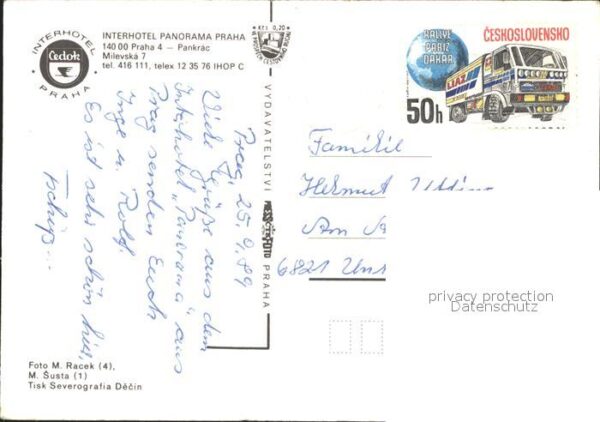 INTERHOTEL PRAHA
Čedok
INTERHOTEL PANORAMA PRAHA
140 00 Praha 4 – Pankrác
Milevská 7
tel. 416 111, telex 12 35 76 IHOP C
Kčs 0,20
RALLYE PAŘÍŽ DAKAR
ČESKOSLOVENSKO
LIAZ
50h
VYDAVATELSTVÍ PRESSFOTO PRAHA
Prag, 25.9.89
Viele Grüße aus dem
Interhotel „Panorama" aus
Prag senden Euch
Inge u. Rolf.
Es ist sehr schön hier.
Tschüß...
Familie
Helmut
Am
6821
privacy protection
Datenschutz
Foto M. Racek (4),
M. Šusta (1)
Tisk Severografia Děčín